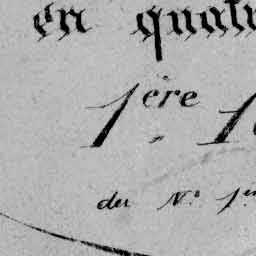 en quatr
1ère 1
du N° 1er